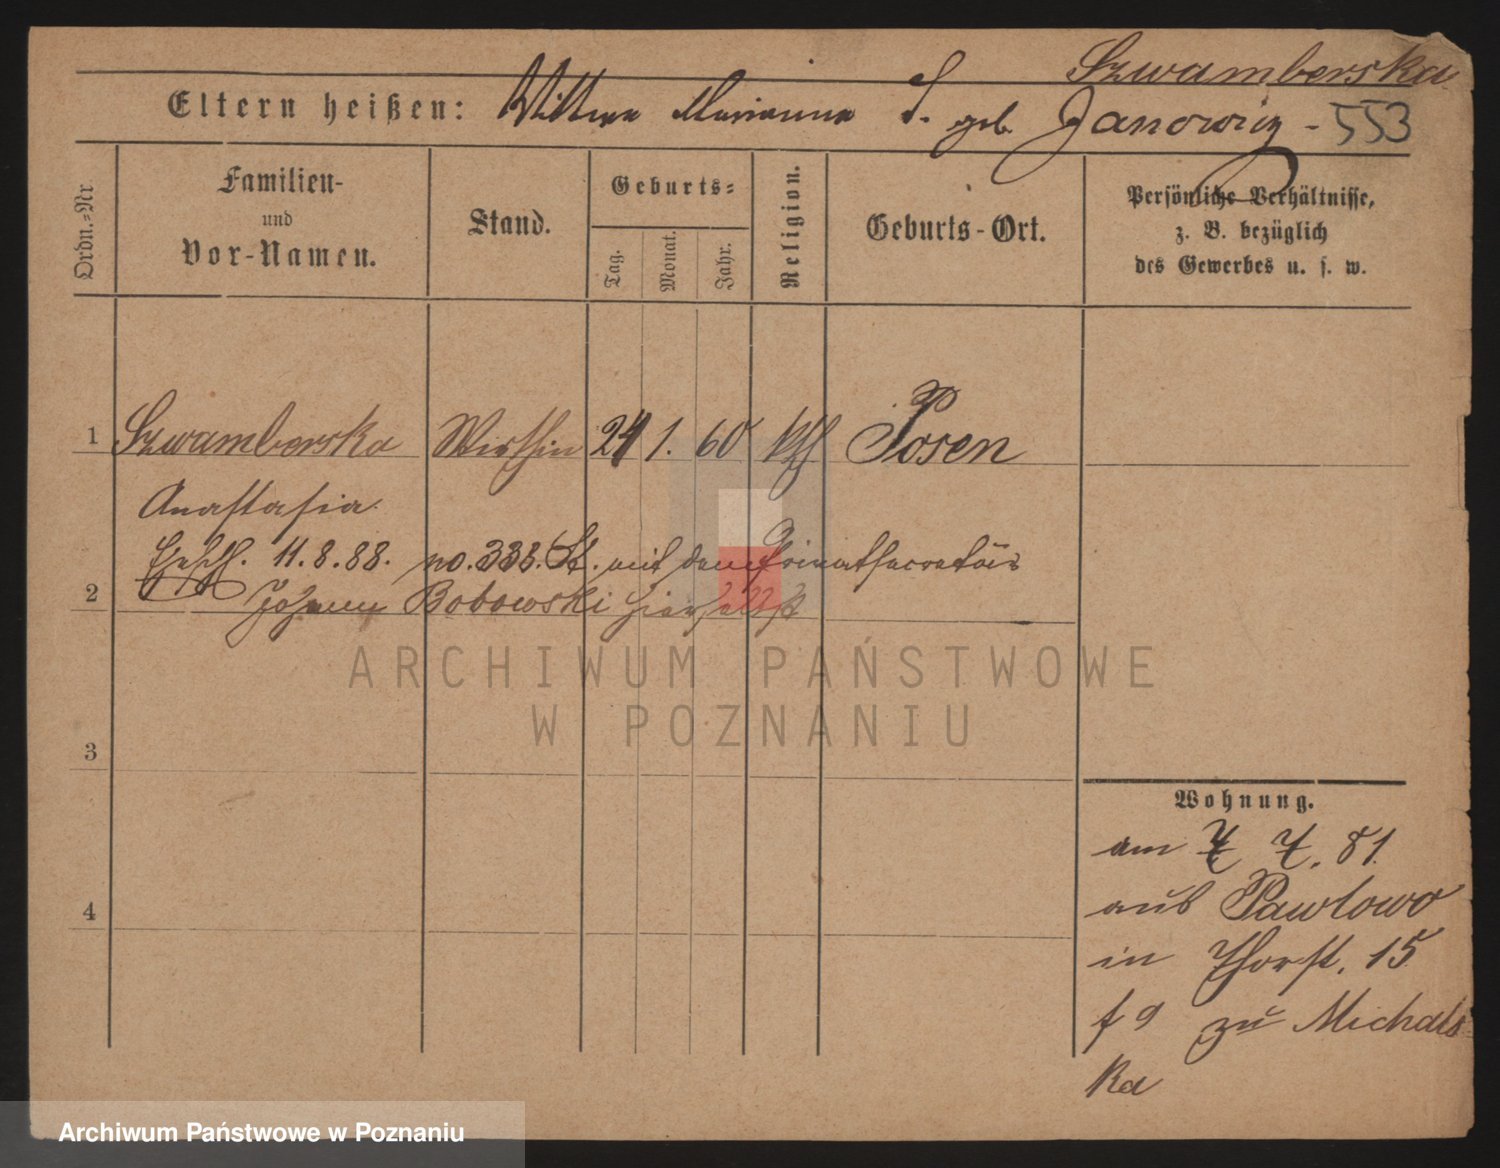 Szwamberska
Eltern heißen: Wittwe Marianna S. geb. Janowicz - 553
Ordn.=Nr.
Familien-
und
Vor-Namen.
Stand.
Geburts=
Tag.
Monat.
Jahr.
Religion.
Geburts-Ort.
Persönliche Verhältnisse,
z. B. bezüglich
des Gewerbes u. s. w.
1 Szwamberska Wirthin 24 1. 60 kth Posen
Anastasia.
Ehesch. 11.8.88. no. 338. St. mit dem Privatsecretair
2 Johann Bobowski hierselbst
3
Wohnung.
am 7 7. 81.
4
aus Pawlowo
in Thorst. 15
f 9 zu Michals
ka
ARCHIWUM PAŃSTWOWE
W POZNANIU
Archiwum Państwowe w Poznaniu